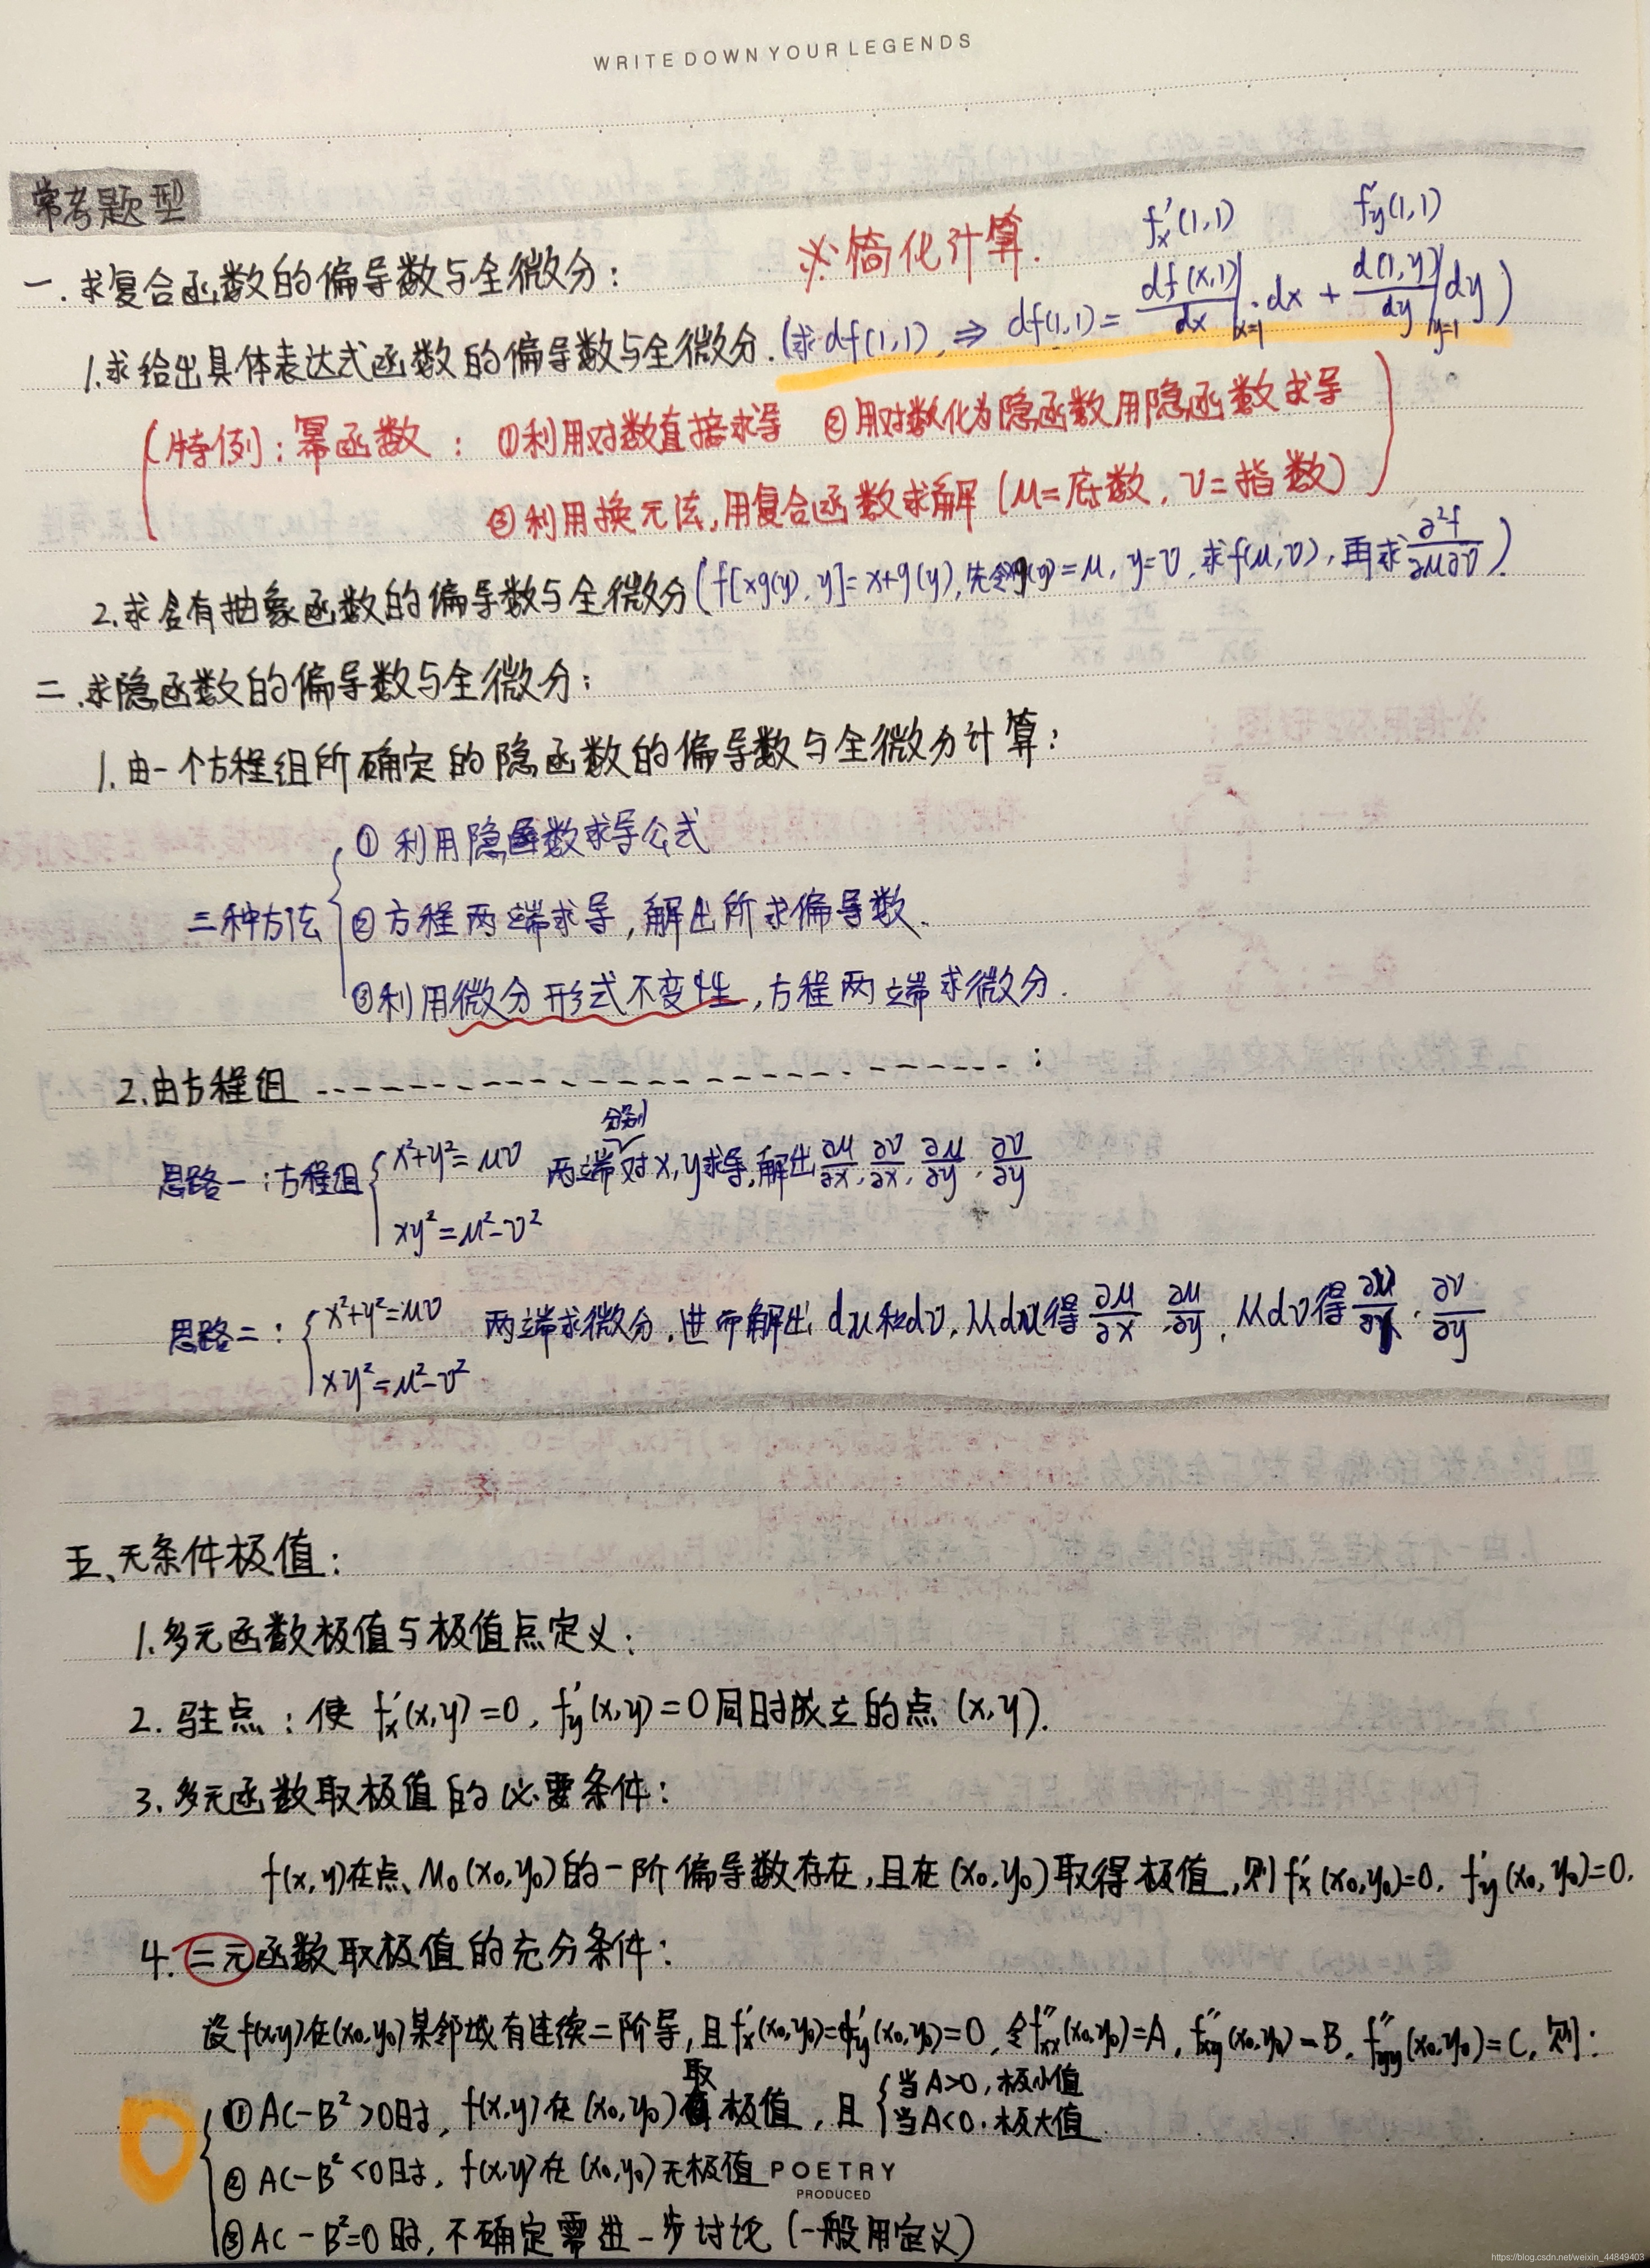 WRITE DOWN YOUR LEGENDS
常考题型
※简化计算.
f'x(1,1)
f'y(1,1)
一.求复合函数的偏导数与全微分:
1.求给出具体表达式函数的偏导数与全微分.(求df(1,1), ⇒ df(1,1)= df(x,1)/dx|x=1·dx + d(1,y)/dy|y=1 dy)
(特例:幂函数: ①利用对数直接求导 ②用对数化为隐函数用隐函数求导
③利用换元法,用复合函数求解(u=底数, v=指数))
2.求含有抽象函数的偏导数与全微分(f[xg(y),y]=x+g(y),先令xg(y)=u, y=v,求f(u,v),再求∂²f/∂u∂v).
二.求隐函数的偏导数与全微分:
1.由一个方程组所确定的隐函数的偏导数与全微分计算:
①利用隐函数求导公式
三种方法 ②方程两端求导,解出所求偏导数.
③利用微分形式不变性,方程两端求微分.
2.由方程组 ------------------------:
分别
思路一:方程组{x²+y²=uv 两端对x,y求导,解出∂u/∂x, ∂v/∂x, ∂u/∂y, ∂v/∂y
xy²=u²-v²
思路二:{x²+y²=uv 两端求微分,进而解出du和dv,从du得∂u/∂x, ∂u/∂y, 从dv得 ∂v/∂y
xy²=u²-v²
五、无条件极值:
1.多元函数极值与极值点定义:
2.驻点:使f'x(x,y)=0, f'y(x,y)=0同时成立的点(x,y).
3.多元函数取极值的必要条件:
f(x,y)在点M₀(x₀,y₀)的一阶偏导数存在,且在(x₀,y₀)取得极值,则f'x(x₀,y₀)=0, f'y(x₀,y₀)=0.
4.二元函数取极值的充分条件:
设f(x,y)在(x₀,y₀)某邻域有连续二阶导,且f'x(x₀,y₀)=f'y(x₀,y₀)=0,令f''xx(x₀,y₀)=A, f''xy(x₀,y₀)=B, f''yy(x₀,y₀)=C,则:
①AC-B²>0时, f(x,y)在(x₀,y₀)取极值,且{当A>0,极小值
当A<0,极大值
②AC-B²<0时, f(x,y)在(x₀,y₀)无极值
POETRY
PRODUCED
③AC-B²=0时,不确定需进一步讨论(一般用定义)
https://blog.csdn.net/weixin_44849403